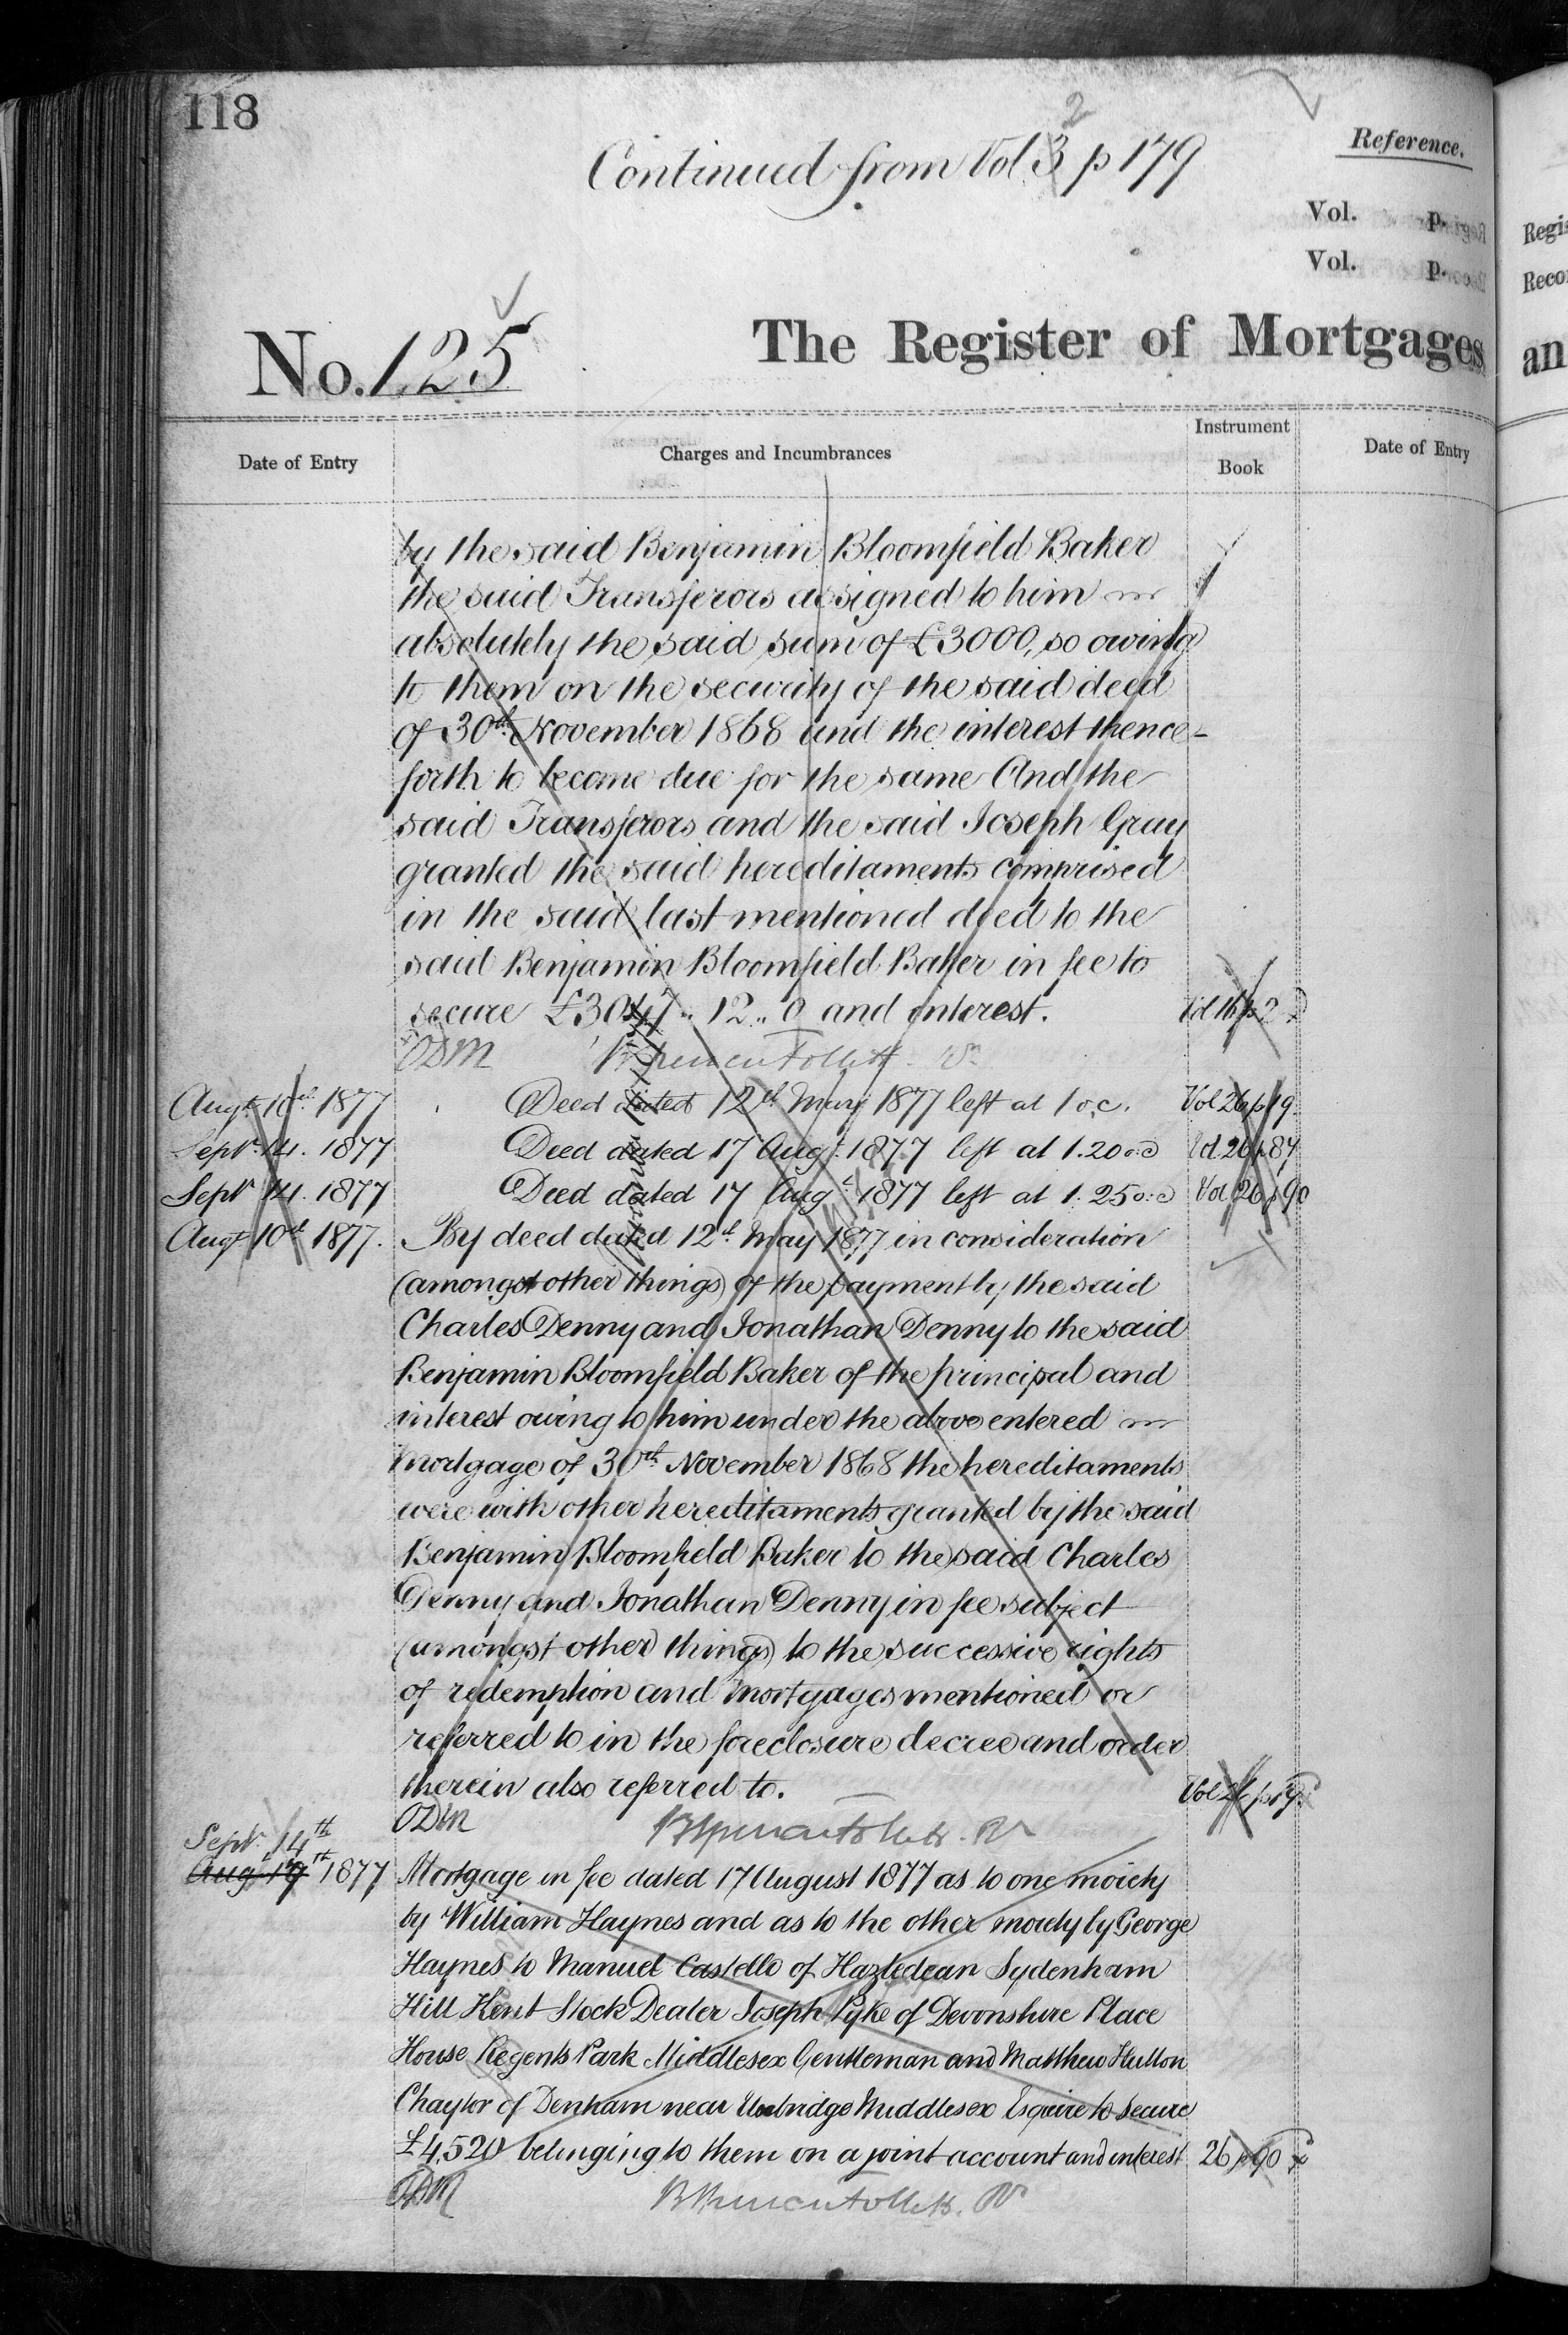 118
Continued from Vol 3 2 p 179
Reference.
Vol. p.
Vol. p.
No. 125
The Register of Mortgages
Date of Entry
Charges and Incumbrances
Instrument
Book
Date of Entry
by the said Benjamin Bloomfield Baker
the said Transferors assigned to him
absolutely the said sum of £3000, so owing
to them on the security of the said deed
of 30th November 1868 and the interest thence-
forth to become due for the same And the
said Transferors and the said Joseph Gray
granted the said hereditaments comprised
in the said last mentioned deed to the
said Benjamin Bloomfield Baker in fee to
secure £3047 .. 12 .. 0 and interest. Vol 16 p 2
ODM
Augt 10th 1877 Deed dated 12th May 1877 left at 1 o.c. Vol 26 p 19
Septr 14. 1877 Deed dated 17 Augt 1877 left at 1.20 o.c Vol 26 p 87
Septr 14. 1877 Deed dated 17 Augt 1877 left at 1.25 o.c Vol 26 p 90
Augt 10th 1877. By deed dated 12th May 1877 in consideration
(amongst other things) of the payment by the said
Charles Denny and Jonathan Denny to the said
Benjamin Bloomfield Baker of the principal and
interest owing to him under the above entered
mortgage of 30th November 1868 the hereditaments
were with other hereditaments granted by the said
Benjamin Bloomfield Baker to the said Charles
Denny and Jonathan Denny in fee subject
(amongst other things) to the successive rights
of redemption and mortgages mentioned or
referred to in the foreclosure decree and order
therein also referred to. Vol 26 p 19
ODM
Septr 14th
Augt 17th 1877 Mortgage in fee dated 17 August 1877 as to one moiety
by William Haynes and as to the other moiety by George
Haynes to Manuel Castello of Hazledean Sydenham
Hill Kent Stock Dealer Joseph Pyke of Devonshire Place
House Regents Park Middlesex Gentleman and Matthew Hutton
Chaytor of Denham near Uxbridge Middlesex Esquire to secure
£4,520 belonging to them on a joint account and interest 26 p 90
ODM
Regis
Recor
an